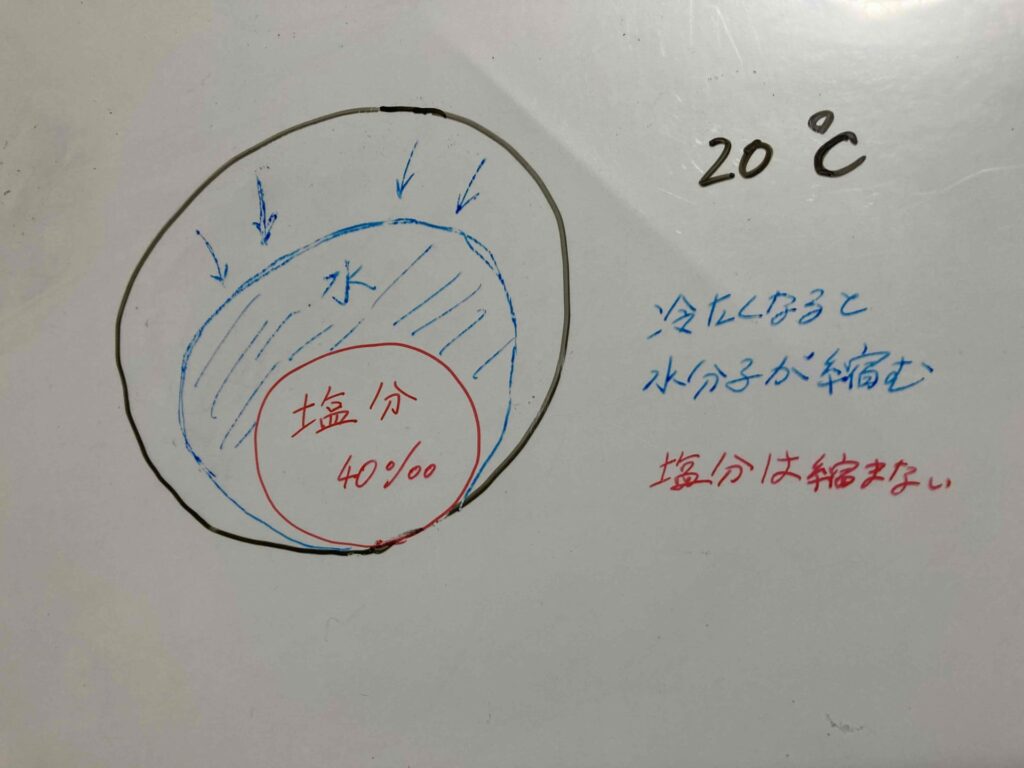 20℃
水
塩分
40‰
冷たくなると
水分子が縮む
塩分は縮まない